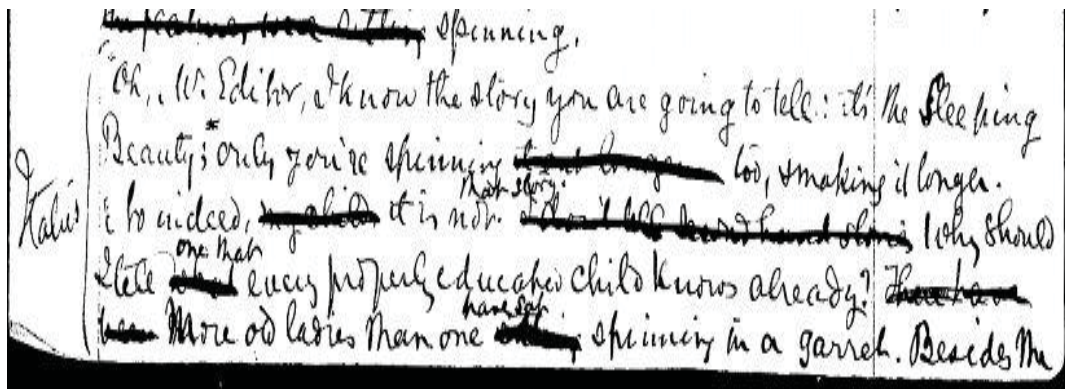 spinning.
"Oh, Mr. Editor, I know the story you are going to tell: it's The Sleeping
Beauty; only you're spinning too, & making it longer.
that story.
Italics
No indeed, it is not. Why should
one that
I tell every properly educated child knows already?
have sat
More old ladies than one spinning in a garret. Besides the